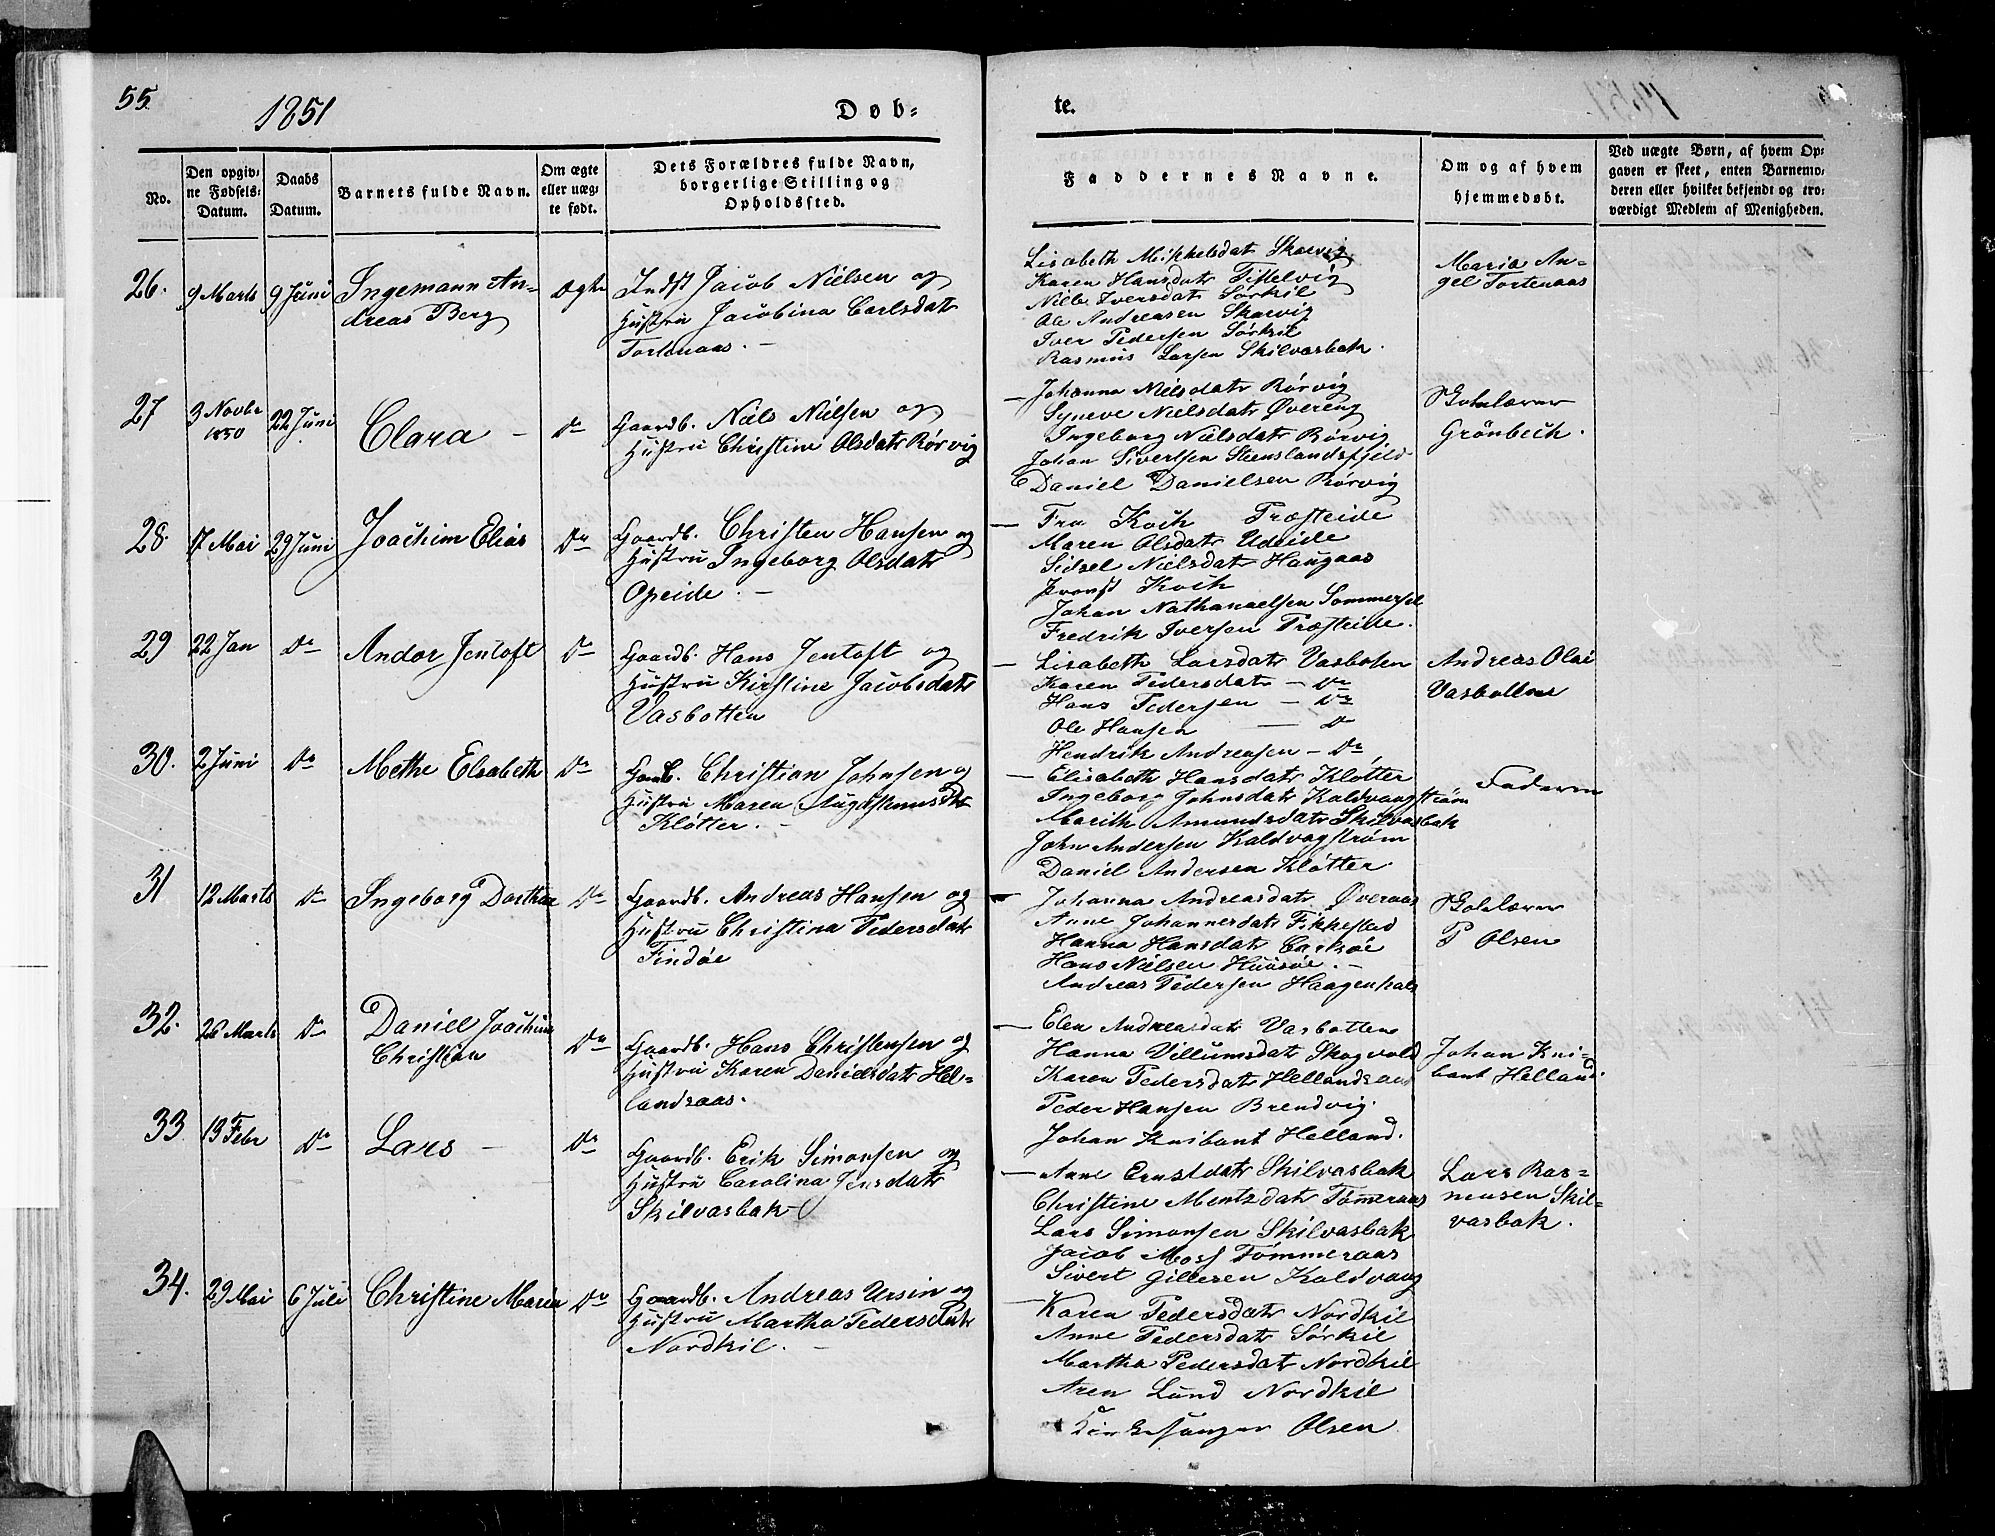 55.
1851
Døb-
te.
No.
Den opgiv-
ne Fødsels-
Datum.
Daabs
Datum.
Barnets fulde Navn.
Om ægte
eller uæg-
te født.
Dets Forældres fulde Navn,
borgerlige Stilling og
Opholdssted.
Faddernes Navne.
Om og af hvem
hjemmedøbt.
Ved uægte Børn, af hvem Op-
gaven er skeet, enten Barnemo-
deren eller hvilket bekjendt og tro-
værdigt Medlem af Menigheden.
26.
9 Marts
9 Juni
Ingemann An-
dreas Berg
ægte
Indst Jacob Nielsen og
Hustru Jacobina Carlsdatr
Tortenaas. -
Lisabeth Mikkelsdatr Skarvig
Karen Hansdatr Tisselvig
Niels Iversdatr Sørkil
Ole Andreasen Skarvig
Iver Pedersen Sørkil
Rasmus Larsen Skilvasbak.
Maria An-
gel Tortenaas
27
3 Novbr
1850
22 Juni
Clara -
Do
Gaardb. Niels Nielsen og
Hustru Christine Olsdatr Rørvig
- Johanna Nielsdatr Rørvig
Syneve Nielsdatr Øvereng
Ingeborg Nielsdatr Rørvig
Johan Sivertsen Steenslandsfjeld
Daniel Danielsen Rørvig
Skolelærer
Grönbech.
28.
17 Mai
29 Juni
Joachim Elias
Do
Gaardb. Christen Hansen og
Hustru Ingeborg Olsdatr
Opeide. -
- Fru Koch Præsteide
Maren Olsdatr Udeide
Sidsel Nielsdatr Haugaas
Provst Koch
Johan Nathanaelsen Sommersel
Fredrik Iversen Præsteide.
29
22 Jan
Do
Andor Jentoft
Do
Gaardb. Hans Jentoft og
Hustru Kirstine Jacobsdatr
Vasbotten
- Lisabeth Larsdatr Vasboten
Karen Pedersdatr - Do
Hans Pedersen - Do
Ole Hansen - Do
Hendrik Andreasen - Do
Andreas Olai
Vasbotten
30.
2 Juni
Do
Methe Elsabeth
Do
Gaardb. Christian Johnsen og
Hustru Maren
Kløtter. -
- Elisabeth Hansdatr Kløtter
Ingeborg Johnsdatr Kaldvaagstrøm
Marith Amundsdatr Skilvasbak
John Andersen Kaldvagstrøm
Daniel Andersen Kløtter.
Faderen
31
12 Marts
Do
Ingeborg Dorthea
Do
Gaardb. Andreas Hansen og
Hustru Christina Pedersdatr
Findöe
- Johanna Andreasdatr Øveraas
Anne Johannesdatr Fikkestad
Hanna Hansdatr Carlsöe
Hans Nielsen Huusöe. -
Andreas Pedersen Haagenhals
Skolelærer
P Olsen
32.
26 Marts
Do
Daniel Joachim
Christian
Do
Gaardb. Hans Christensen og
Hustru Karen Danielsdatr Hel-
landsaas.
- Elen Andreasdatr Vasbotten
Hanna Villumsdatr Skogvold
Karen Pedersdatr Hellandsaas
Peder Hansen Brendvig.
Johan Knibant Helland.
Johan Kni-
bant Helland.
33
13 Febr
Do
Lars -
Do
Gaardb. Erik Simonsen og
Hustru Carolina Jensdatr
Skilvasbak
- Anne Ernstdatr Skilvasbak
Christine Mentzdatr Tømeraas
Lars Simonsen Skilvasbak
Jacob Mosf Tømmeraas
Sivert Gillesen Kaldvaag
Lars Ras-
musen Skil-
vasbak.
34.
29 Mai
6 Juli
Christine Maria
Do
Gaardb. Andreas Ursin og
Hustru Martha Pedersdatr
Nordkil. -
- Karen Pedersdatr Nordkil
Anne Pedersdatr Sørkil
Martha Pedersdatr Nordkil
Aren Lund Nordkil
Kirkesanger Olsen